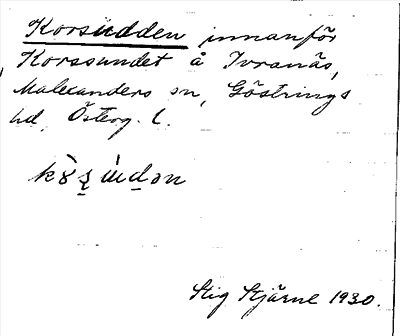 Korsudden innanför
Korssundet å Ivranäs,
Malexanders sn, Göstrings
hd, Österg. l.
Stig Stjärne 1930.